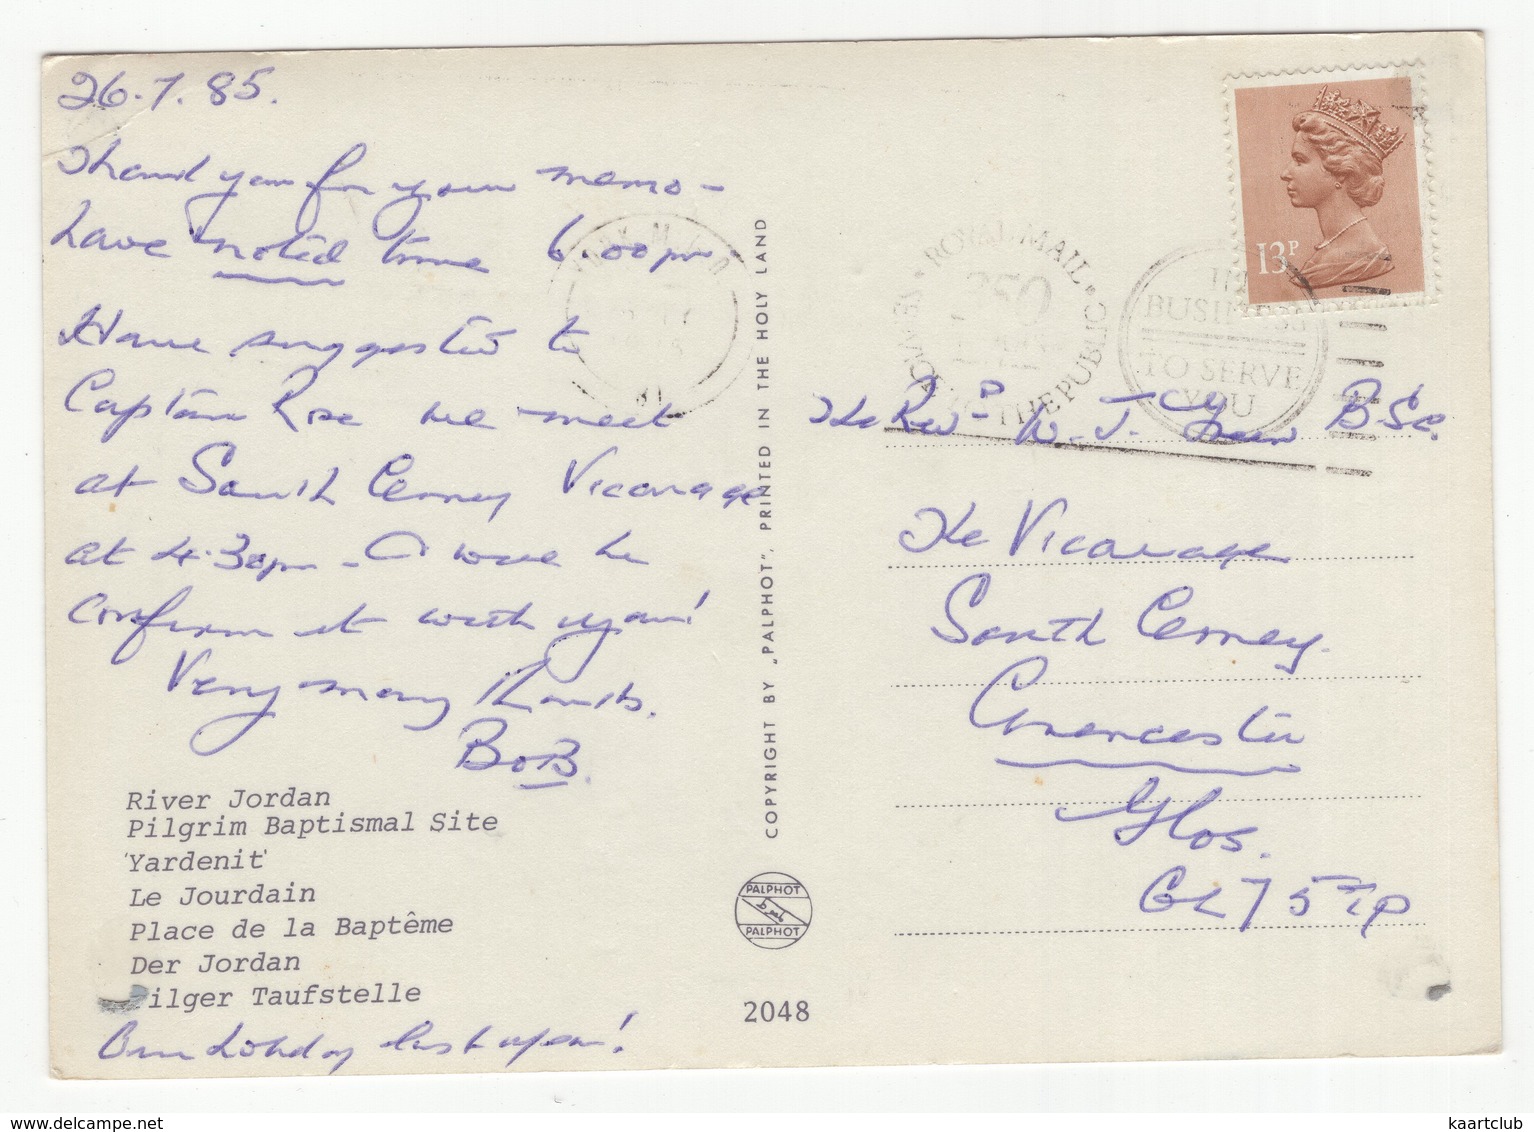 26.7.85.
Thank you for your memo -
have noted time 6.00pm
Have suggested to
Captain Rose we meet
at South Cerney Vicarage
at 4.30pm - I will be
confirm it with you!
Very many thanks.
BoB.
River Jordan
Pilgrim Baptismal Site
'Yardenit'
Le Jourdain
Place de la Baptême
Der Jordan
Pilger Taufstelle
Our holiday last year!
COPYRIGHT BY „PALPHOT”, PRINTED IN THE HOLY LAND
PALPHOT
PALPHOT
2048
13P
ROYAL MAIL
350
THE PUBLIC
THE
BUSINESS
TO SERVE
YOU
The Revd W. J. Green BSc.
The Vicarage
South Cerney.
Cirencester
Glos.
GL7 5TP
kaartclub